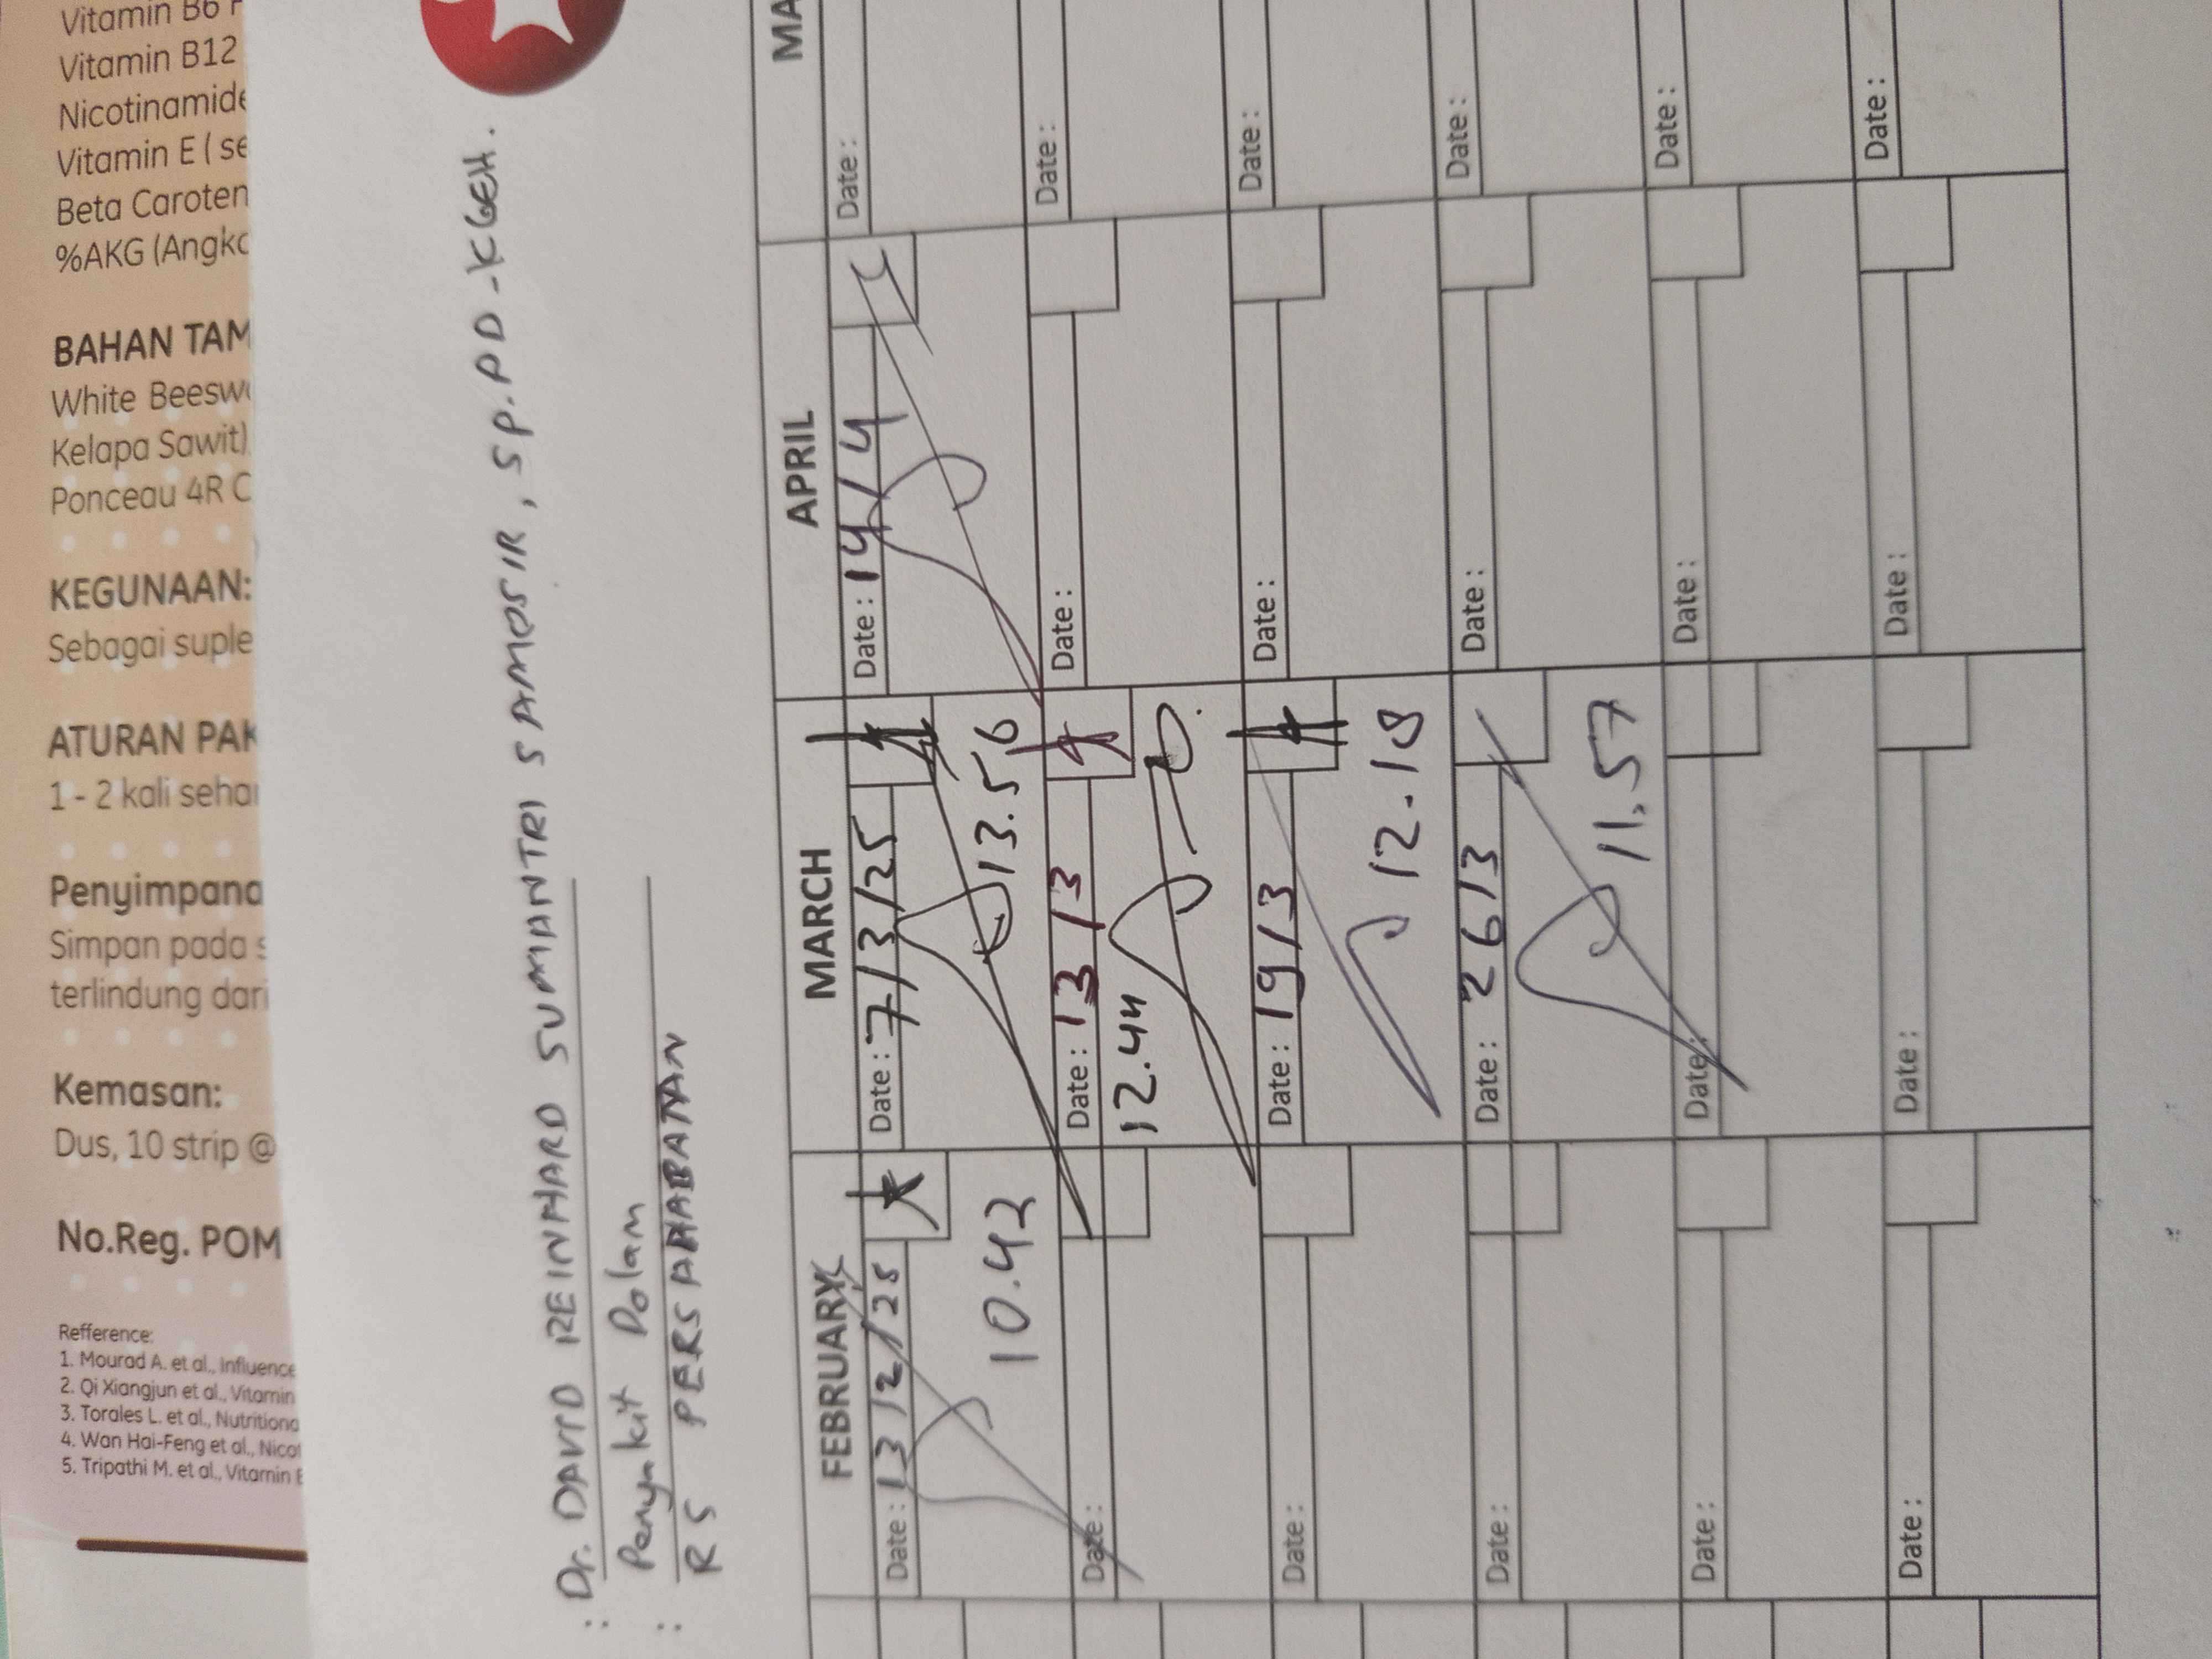 Vitamin B6
Vitamin B12
Nicotinamide
Vitamin E ( se
Beta Caroten
%AKG (Angka
BAHAN TAM
White Beeswa
Kelapa Sawit)
Ponceau 4R C
KEGUNAAN:
Sebagai suple
ATURAN PAK
1 - 2 kali sehar
Penyimpana
Simpan pada s
terlindung dari
Kemasan:
Dus, 10 strip @
No.Reg. POM
Refference:
1. Mourad A. et al., Influence
2. Qi Xiangjun et al., Vitamin
3. Torales L. et al., Nutritiona
4. Wan Hai-Feng et al., Nicot
5. Tripathi M. et al., Vitamin E
: Dr. DAVID REINHARD SUMANTRI SAMOSIR, SP.PD-KGEH.
Penyakit Dalam
: RS PERSAHABATAN
FEBRUARY MARCH APRIL MA
Date: 13/2/25 Date: 7/3/25 Date: 14/4 Date:
10.42 13.56
Date: Date: 13/3 Date: Date:
12.44
Date: Date: 19/3 Date: Date:
12.18
Date: Date: 26/3 Date: Date:
11.57
Date: Date: Date: Date:
Date: Date: Date: Date: